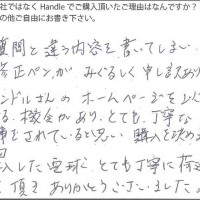 社ではなく Handle でご購入頂いたご理由はなんですか？
の他ご自由にお書き下さい。
質問と違う内容を書いてしまい
修正ペンが みぐるしく 申しあり
ンドルさんの ホームページを
る機会があり、とても丁寧な
事をされていると思い 購入を決め
入した電球 とても丁寧に荷
頂き ありがとうございました。